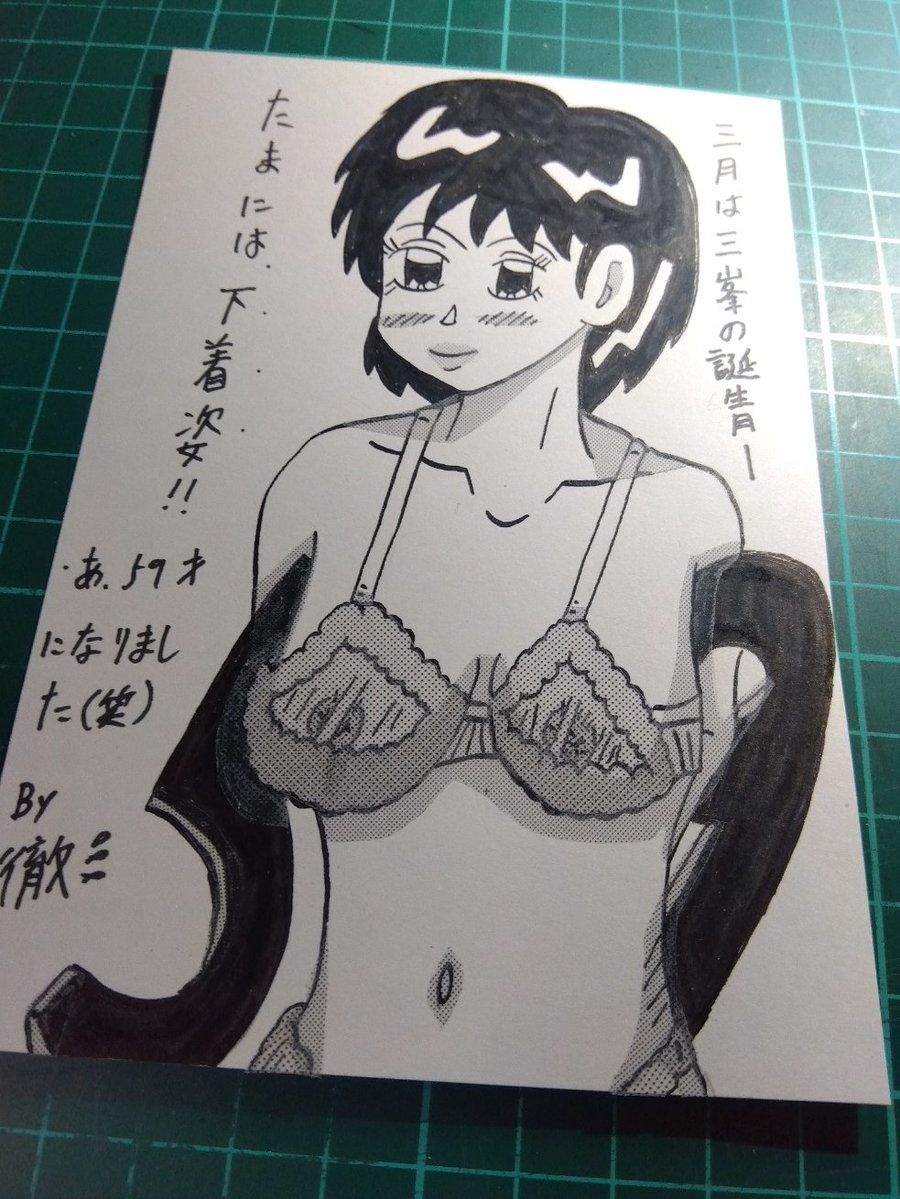 三月は三峯の誕生月ー
たまには、下着姿!!
・あ、59才
になりまし
た(笑)
By
徹三